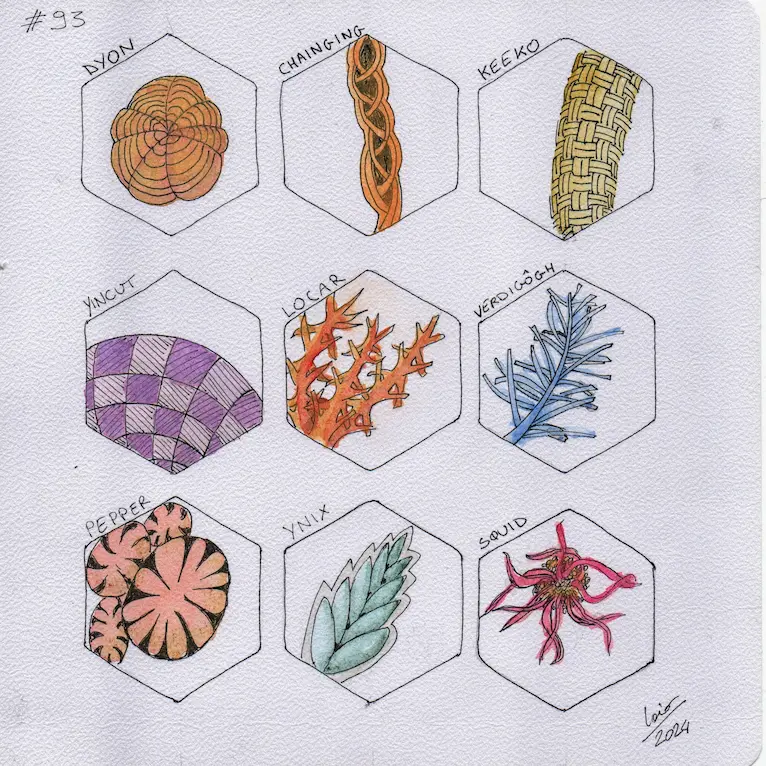 #93
DYON
CHAINGING
KEEKO
YINCUT
LOCAR
VERDIGÔGH
PEPPER
YNIX
SQUID
2024